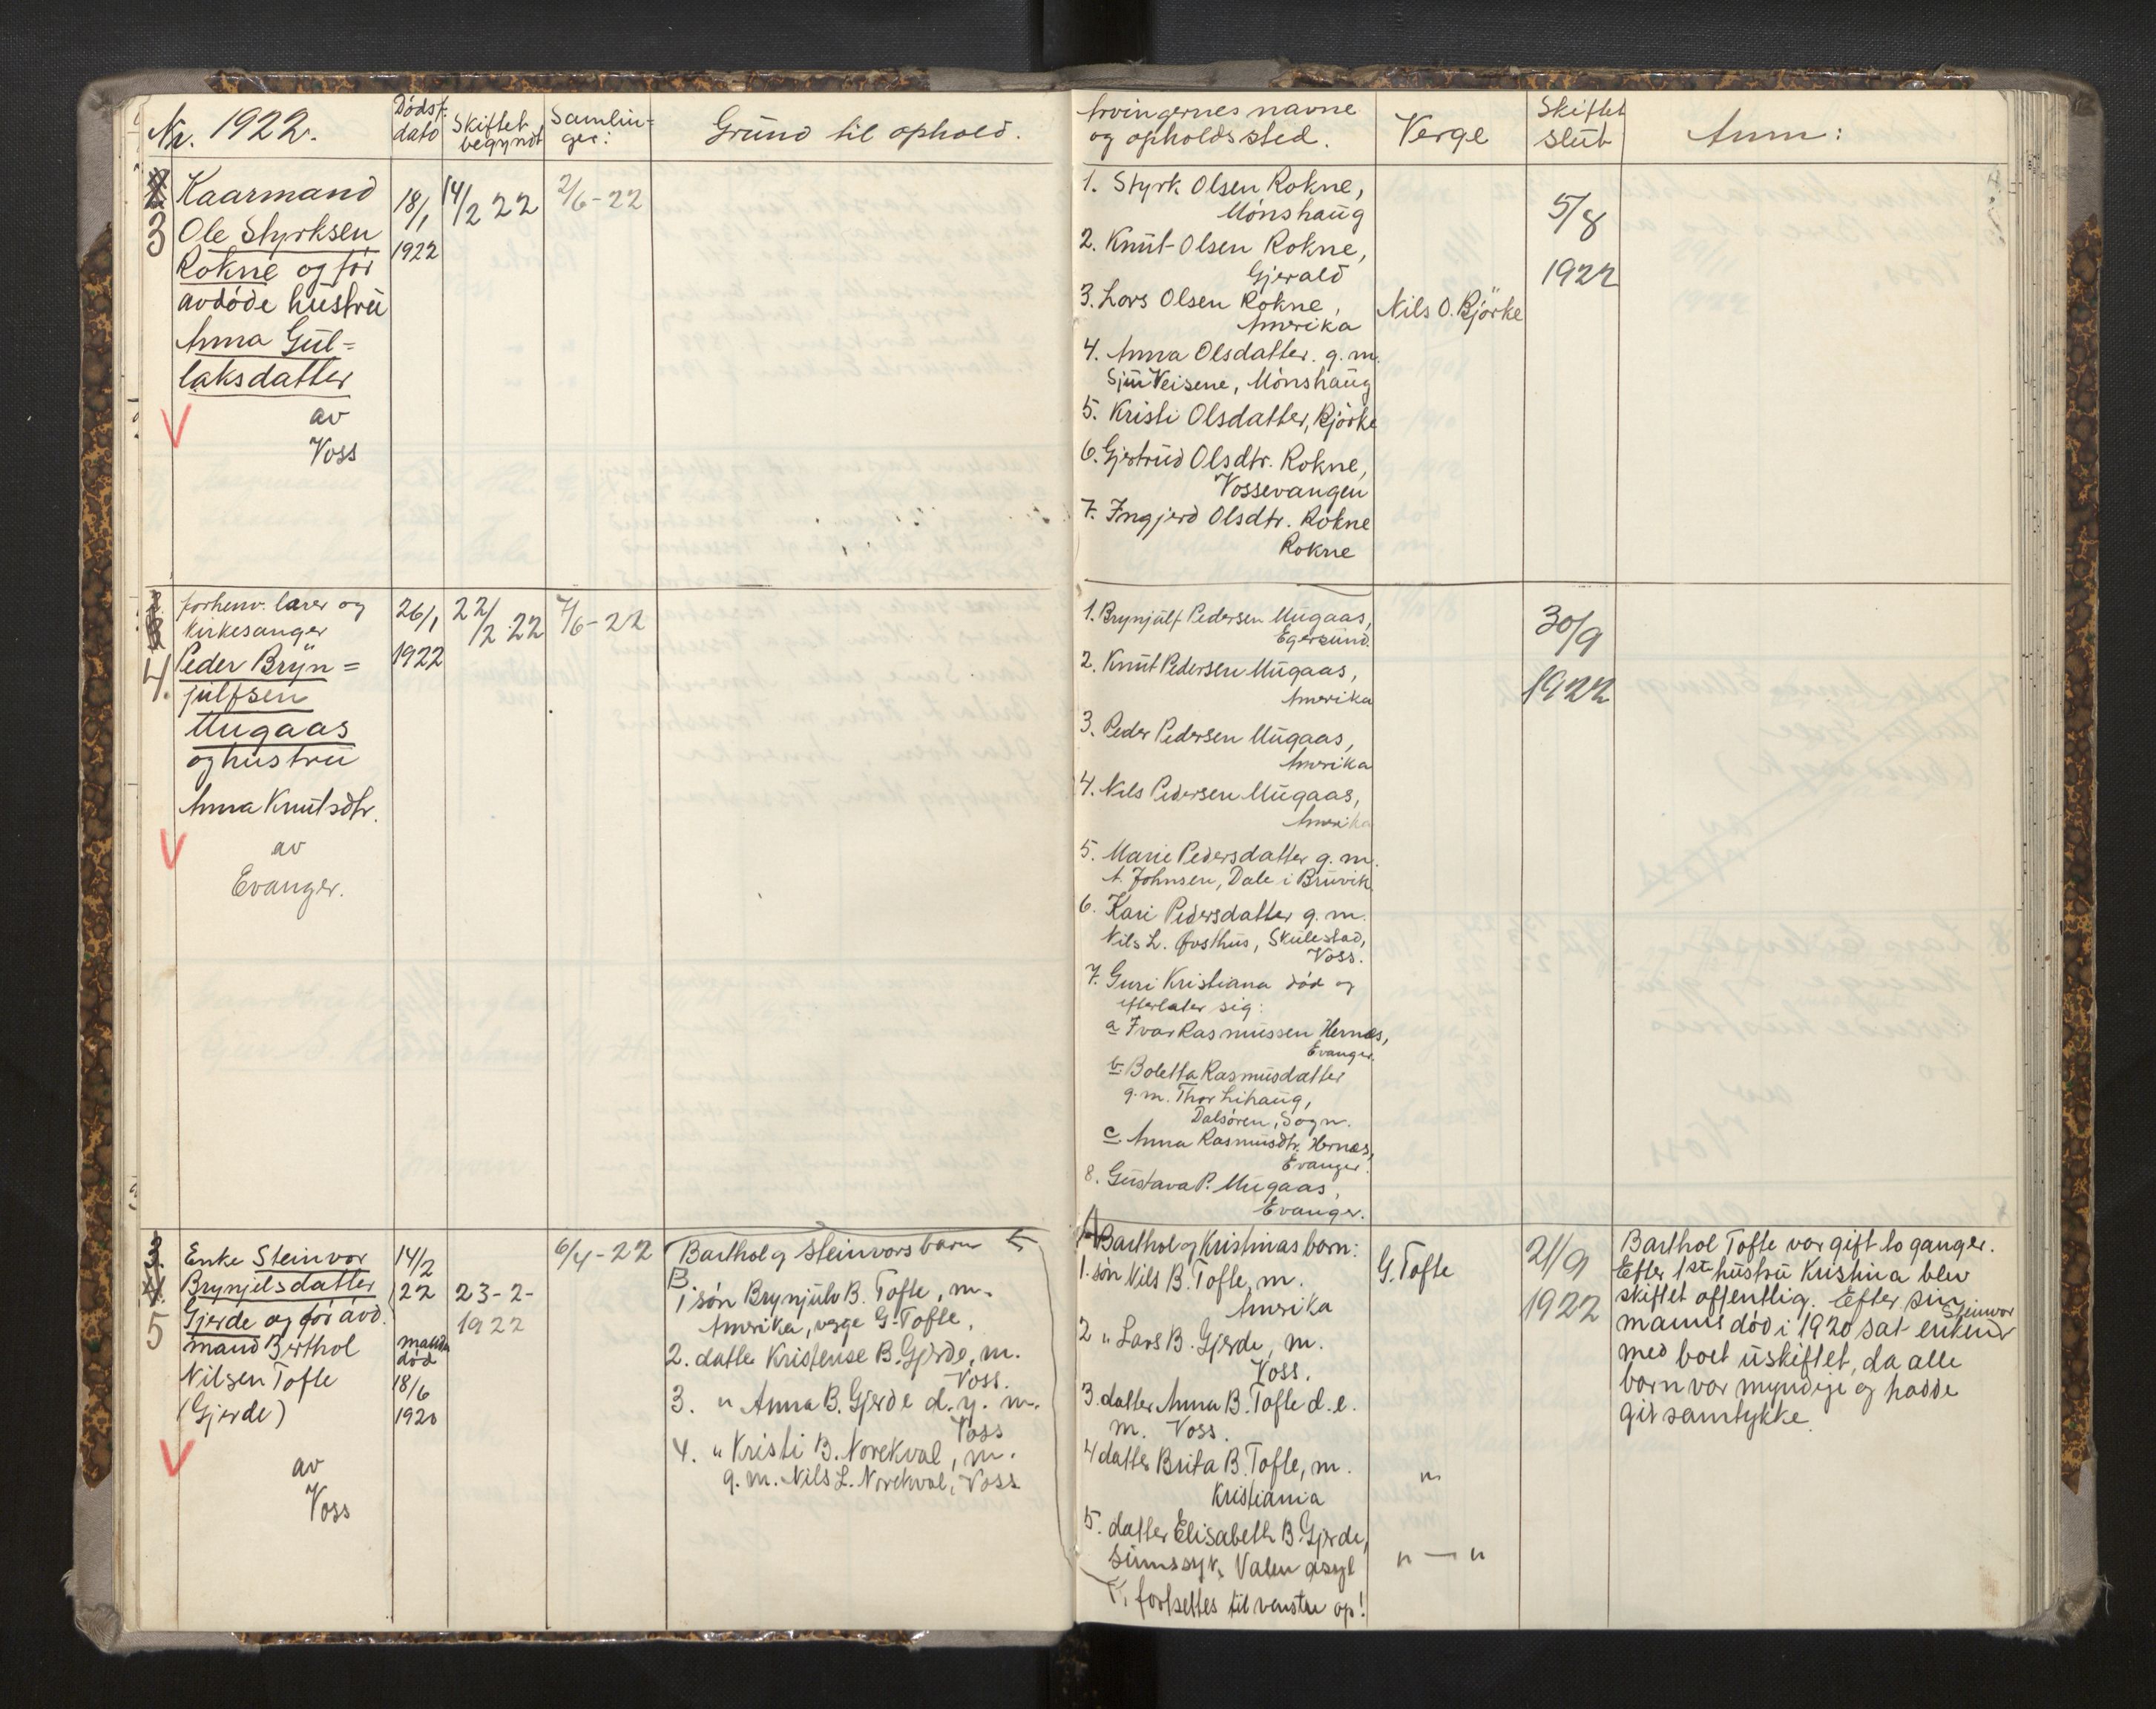 Nr. 1922.
Dødsf.
dato
Skiftet
begyndt
Samlin=
ger:
Grund til ophold.
3
Kaarmand
Ole Styrksen
Rokne og før
avdøde hustru
Anna Gul=
laksdatter
av
Voss
18/1
1922
14/2 22
2/6-22
4.
forhenv. lærer og
kirkesanger
Peder Bryn=
julfsen
Mugaas
og hustru
Anna Knutsdtr.
av
Evanger.
26/1
1922
22/2 22
7/6-22
5
Enke Steinvor
Brynjelsdatter
Gjerde og før avd.
mand Berthol
Nilsen Tofte
(Gjerde)
av
Voss
14/2
22
død
18/6
1920
23-2-
1922
6/4-22
Barthol og Steinvors barn
B.
1 søn Brynjulv B. Tofte, m.
Amerika, verge G. Tofte,
2. datter Kristense B. Gjerde, m.
Voss.
3. " Anna B. Gjerde d.y. m.
Voss
4. " Kristi B. Norekval, m.
g.m. Nils L. Norekval, Voss
Arvingernes navne
og opholdssted.
Verge
Skiftet
slut
Anm:
1. Styrk Olsen Rokne,
Mønshaug
2. Knut Olsen Rokne,
Gjerald
3. Lars Olsen Rokne,
Amerika
Nils O. Bjørke
4. Anna Olsdatter. g. m.
Sjur Veisene, Mønshaug
5. Kristi Olsdatter, Bjørke
6. Gjertrud Olsdtr. Rokne,
Vossevangen
7. Ingjerd Olsdtr. Rokne
Rokne
5/8
1922
1. Brynjulf Pedersen Mugaas,
Egersund.
2. Knut Pedersen Mugaas,
Amerika
3. Peder Pedersen Mugaas,
Amerika
4. Nils Pedersen Mugaas,
Amerika
5. Marie Pedersdatter g. m.
A. Johnsen, Dale i Bruvik
6. Kari Pedersdatter g. m.
Nils L. Gosthus, Skulestad,
Voss.
7. Guri Kristiana død og
efterlater sig:
a Ivar Rasmussen Hernes,
Evanger.
b. Boletta Rasmusdatter
g. m. Thor Lihaug,
Dalsøren, Sogn.
c. Anna Rasmusdtr. Hernes,
Evanger.
8. Gustava P. Mugaas,
Evanger.
30/9
1922
A Barthol og Kristinas barn:
1. søn Nils B. Tofte, m.
Amerika
G. Tofte
2 " Lars B. Gjerde, m.
Voss.
3. datter Anna B. Tofte d.e.
m. Voss.
4 datter Brita B. Tofte, m.
Kristiania
"
5. datter Elisabeth B. Gjerde,
sinnssyk, Valen asyl
" — "
fortsettes til venstre op!
21/9
1922
Barthol Tofte var gift to ganger.
Efter 1ste hustru Kristina blev
skiftet offentlig. Efter sin
mands død i 1920 sat enken Steinvor
med boet uskiftet, da alle
barn var myndige og hadde
git samtykke.